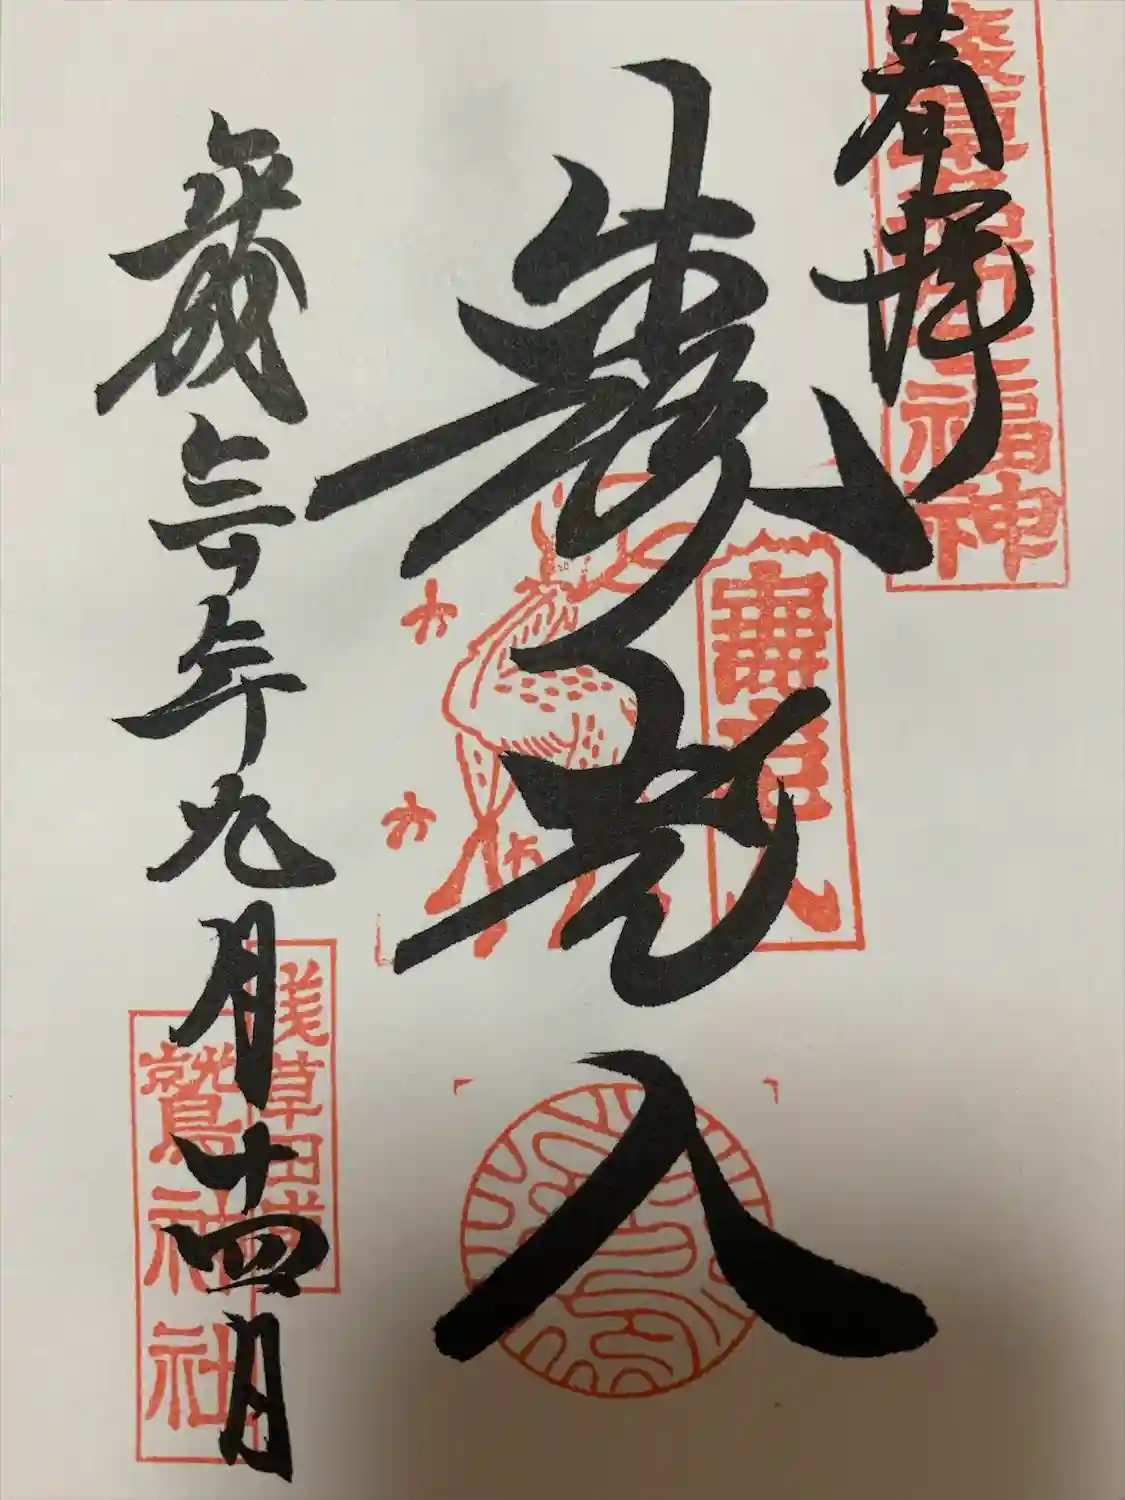 奉拝
浅草名所七福神
寿老人
寿老人
歳六年九月十四日
浅草田甫
鷲神社